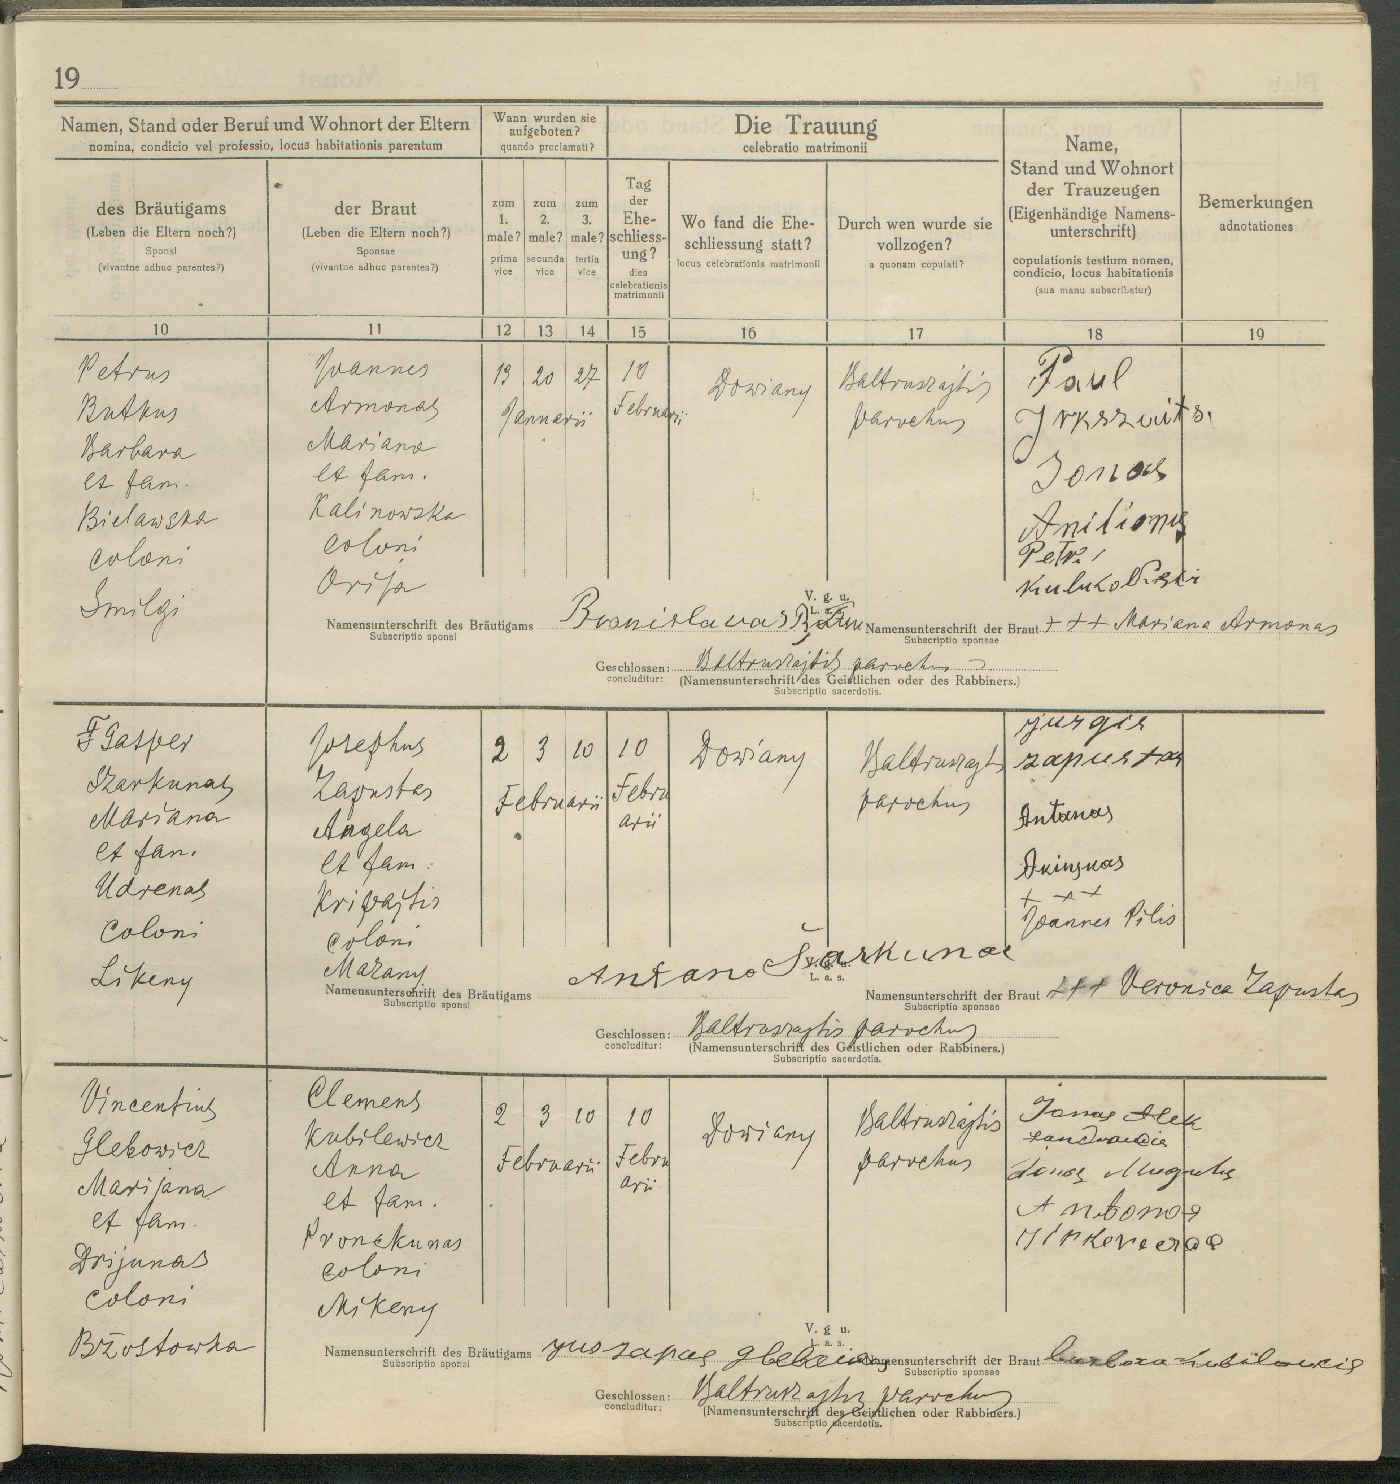 19
Namen, Stand oder Beruf und Wohnort der Eltern
nomina, condicio vel professio, locus habitationis parentum
Wann wurden sie
aufgeboten?
quando proclamati?
Die Trauung
celebratio matrimonii
Name,
Stand und Wohnort
der Trauzeugen
(Eigenhändige Namens-
unterschrift)
copulationis testium nomen,
condicio, locus habitationis
(sua manu subscribatur)
Bemerkungen
adnotationes
des Bräutigams
(Leben die Eltern noch?)
Sponsi
(vivantne adhuc parentes?)
der Braut
(Leben die Eltern noch?)
Sponsae
(vivantne adhuc parentes?)
zum
1.
male?
prima
vice
zum
2.
male?
secunda
vice
zum
3.
male?
tertia
vice
Tag
der
Ehe-
schliess-
ung?
dies
celebrationis
matrimonii
Wo fand die Ehe-
schliessung statt?
locus celebrationis matrimonii
Durch wen wurde sie
vollzogen?
a quonam copulati?
10 11 12 13 14 15 16 17 18 19
Petrus
Butkus
Barbara
et fam.
Bielawska
coloni
Smilgi
Joannes
Armonas
Mariana
et fam.
Kalinowska
coloni
Orija
13 20 27
Januarii
10
Februarii
Dowiany
Baltruszajtis
parochus
Paul
Jonas
Anilionis
Petr.
V. g. u.
L. a. s.
Namensunterschrift des Bräutigams Bronislavas
Subscriptio sponsi
Namensunterschrift der Braut +++ Mariana Armonas
Subscriptio sponsae
Geschlossen: Baltruszajtis parochus
concluditur: (Namensunterschrift des Geistlichen oder des Rabbiners.)
Subscriptio sacerdotis.
Gasper
Szarkunas
Mariana
et fam.
Udrenas
coloni
Likeny
Josephus
Zapustas
Angela
et fam.
Kripajtis
coloni
Mazany
2 3 10
Februarii
10
Febru
arii
Dowiany
Baltruszajtis
parochus
jurgis
zapustas
Antanas
+ + +
Joannes Pilis
L. a. s.
Namensunterschrift des Bräutigams Antano Šarkunas
Subscriptio sponsi
Namensunterschrift der Braut +++ Veronica Zapustas
Subscriptio sponsae
Geschlossen: Baltruszajtis parochus
concluditur: (Namensunterschrift des Geistlichen oder Rabbiners.)
Subscriptio sacerdotis.
Vincentius
Glebowicz
Marijana
et fam.
Drijunas
coloni
Bżostowka
Clemens
Kubilewicz
Anna
et fam.
Pronckunas
coloni
Mikeny
2 3 10
Februarii
10
Febru
arii
Dowiany
Baltruszajtis
parochus
Jonas
Jonas
Antonas
V. g. u.
L. a. s.
Namensunterschrift des Bräutigams yuozapas
Subscriptio sponsi
Namensunterschrift der Braut
Subscriptio sponsae
Geschlossen: Baltruszajtis parochus
concluditur: (Namensunterschrift des Geistlichen oder Rabbiners.)
Subscriptio sacerdotis.